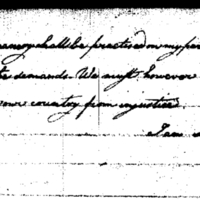 shall be practised on my par
demands. We must however
own country from injustice.
I am